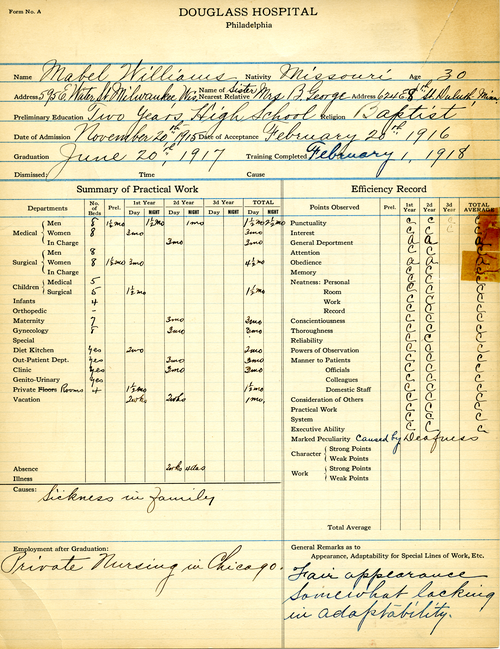 Form No. A
DOUGLASS HOSPITAL
Philadelphia
Name Mabel Williams Nativity Missouri Age 30
Address 595 E. Water St. Milwaukee, Wis. Name of Nearest Relative Sister Mrs B. George Address 624 E 8th St. Duluth, Minn
Preliminary Education Two Years, High School Religion Baptist
Date of Admission November 20th 1915 Date of Acceptance February 20th 1916
Graduation June 20th 1917 Training Completed February 1, 1918
Dismissed; Time Cause
Summary of Practical Work
Departments No. of Beds Prel. 1st Year 2d Year 3d Year TOTAL
Day NIGHT Day NIGHT Day NIGHT Day NIGHT
Medical Men 8 1½mo 1½mo 1mo 1½mo 2½mo
Women 8 3mo 3mo
In Charge 3mo 3mo
Surgical Men 8
Women 8 1½mo 3mo 4½mo
In Charge
Children Medical 5
Surgical 5 1½mo 1½mo
Infants 4
Orthopedic -
Maternity 7 3mo 3mo
Gynecology 8 3mo 3mo
Special
Diet Kitchen yes 2mo 2mo
Out-Patient Dept. yes 3mo 3mo
Clinic yes 3mo 3mo
Genito-Urinary yes
Private Floors Rooms 4 1½mo 1½mo
Vacation 2wks 2wks 1mo.
Absence 2wks
Illness
Causes: Sickness in Family
Employment after Graduation:
Private Nursing in Chicago.
Efficiency Record
Points Observed Prel. 1st Year 2d Year 3d Year TOTAL AVERAGE
Punctuality C C C
Interest C C C
General Department A A
Attention C C
Obedience A A
Memory C C
Neatness: Personal C C C
Room C C C
Work C C C
Record C C C
Conscientiousness C C C
Thoroughness C C C
Reliability C C C
Powers of Observation C C C
Manner to Patients C C C
Officials C C C
Colleagues C C C
Domestic Staff C C C
Consideration of Others C C C
Practical Work C C C
System C C C
Executive Ability C C C
Marked Peculiarity Caused by Deafness
Character Strong Points
Weak Points
Work Strong Points
Weak Points
Total Average
General Remarks as to
Appearance, Adaptability for Special Lines of Work, Etc.
Fair appearance
Somewhat lacking
in adaptability.